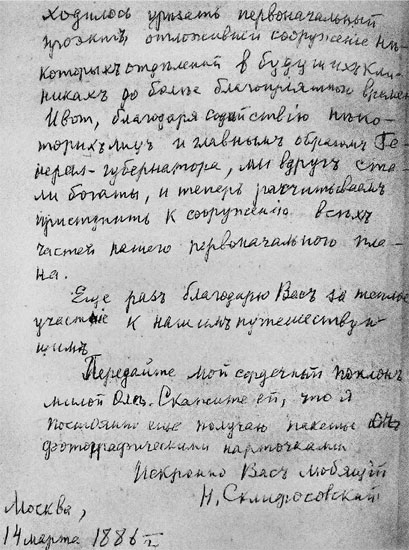 ходилось урѣзать первоначальный
проэктъ отложивши сооруженіе нѣ-
которыхъ отдѣленій в будущихъ кли-
никахъ до болѣе благопріятныхъ времен
И вот, благодаря содѣйствію нѣко-
торыхъ лицъ и главнымъ образомъ Ге-
нерал-губернатора, мы вдругъ ста-
ли богаты, и теперь расчитываемъ
приступить к сооруженію всѣхъ
частей нашего первоначального пла-
на.
Еще разъ благодарю Васъ за теплое
участіе к нашимъ путешествую-
щимъ.
Передайте мой сердечный поклонъ
милой Скажите ей, что я
постоянно еще получаю пакеты съ
фотографическими карточками
Искренно Васъ любящій
Н. Склифосовскій
Москва,
14 марта 1886